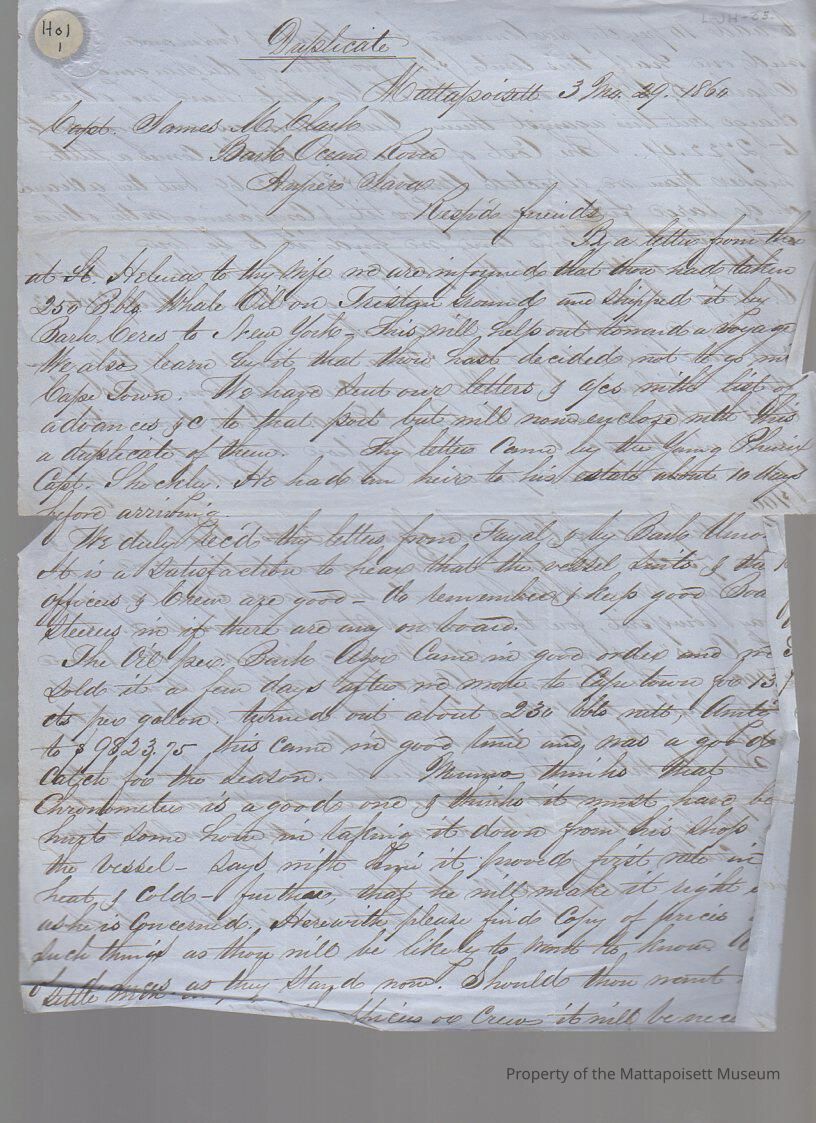 Ho1
1
L-JH-35.
Duplicate
Mattapoisett 3 Mo. 29. 1860
Capt. James M. Clark
Bark Ocean Rover
Anpiers Java
Resp'd friend
By a letter from thee
at St. Helena to thy wife we are informed that thou had taken
250 Bbls Whale Oil on Tristan Ground and shipped it by
Bark Ceres to New York. This will help out toward a voyage
We also learn by it that thou hast decided not to go in
Cape Town. We have sent our letters & a/cs with list of
advances &c to that port but will now enclose with this
a duplicate of them. Thy letter came by the Young Phenix
Capt. Shockley. He had an heir to his estate about 10 days
before arriving.
We duly rec'd thy letters from Fayal & by Bark
It is a satisfaction to hear that the vessel suits & the
officers & Crew are good - do remember & keep good Boa
steerers in if there are any on board.
The Oil per Bark came in good order and we
sold it a few days after we wrote to Cape town for
cts per gallon. turned out about 230 bbls nett,
to $9823.75 this came in good time and was a good
Catch for the season. thinks that
Chronometer is a good one & thinks it must have be
hurt some how in taking it down from his shop
the vessel - says with him it proved first rate in
heat & cold - further, that he will make it right
as he is Concerned. Herewith please find Copy of prices
such things as thou will be likely to want to know.
as they stand now. Should thou want
or Crew it will be nece
Property of the Mattapoisett Museum